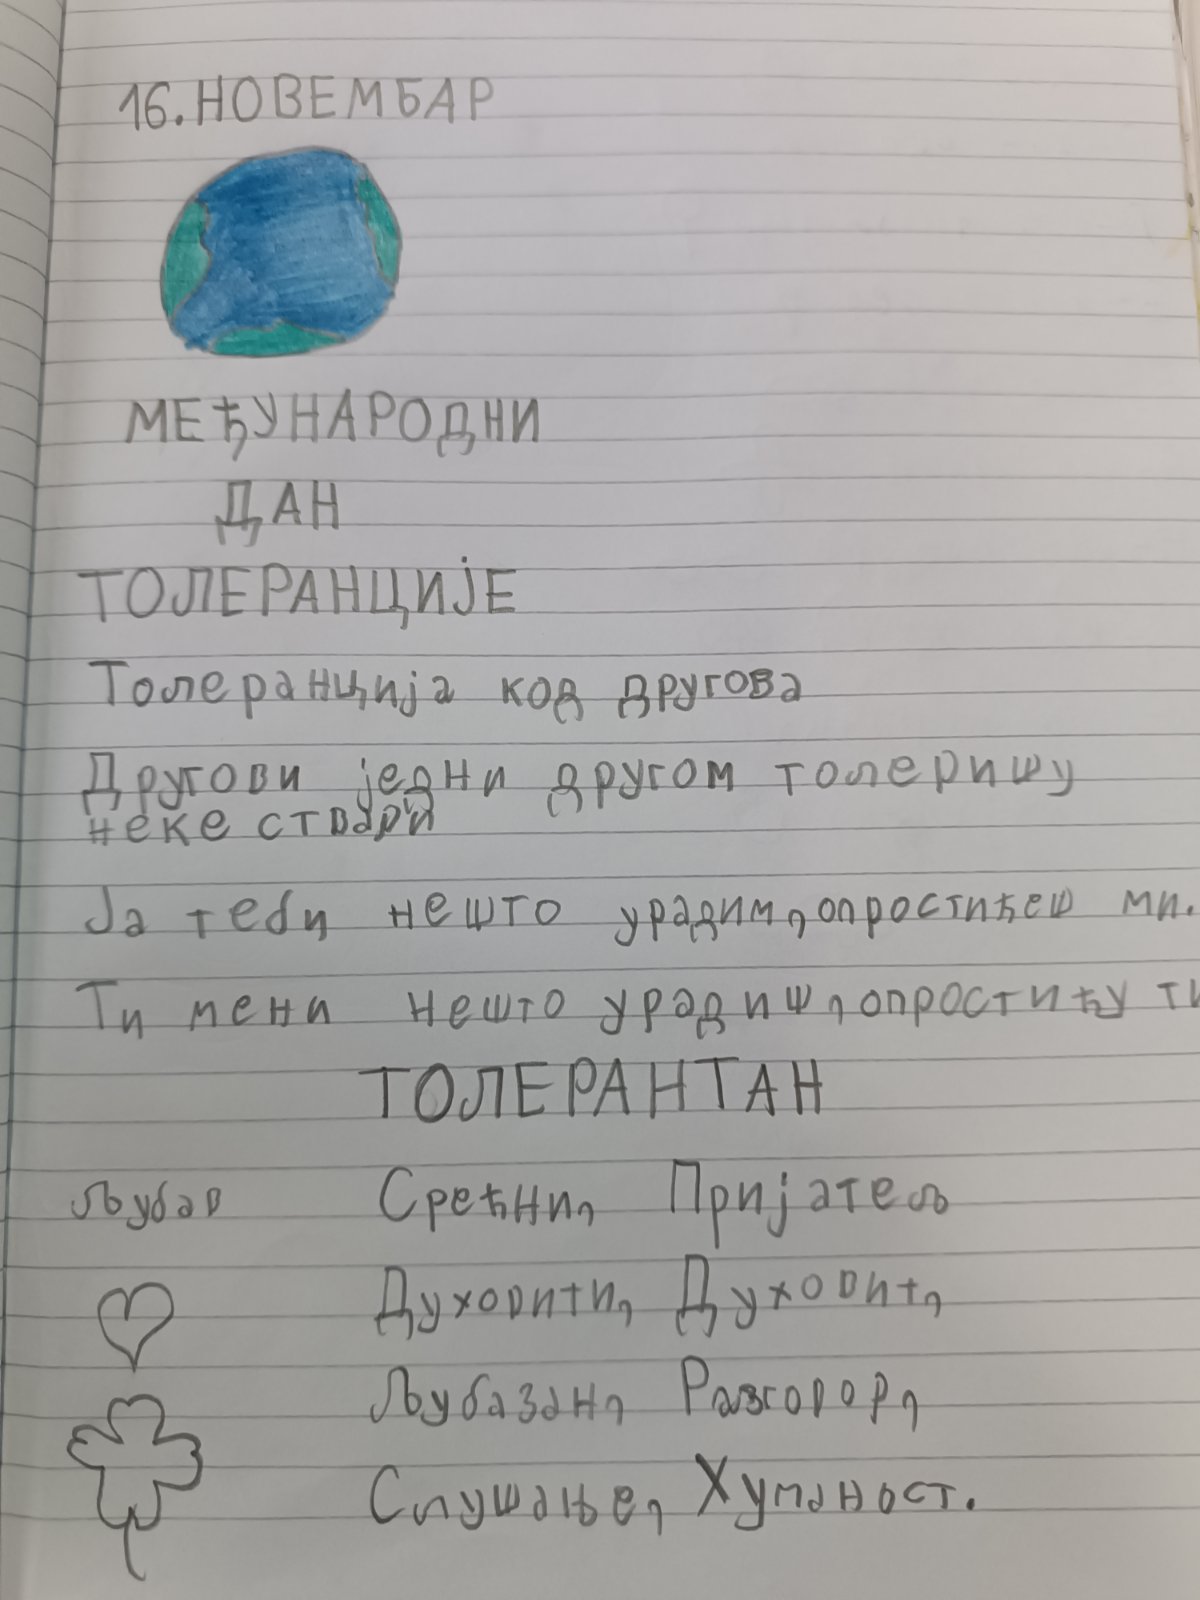 16. НОВЕМБАР
МЕЂУНАРОДНИ
ДАН
ТОЛЕРАНЦИЈЕ
Толеранција код другова
Другови једни другом толеришу
неке ствари
Ја теби нешто урадим, опростићеш ми.
Ти мени нешто урадиш, опростићу ти
ТОЛЕРАНТАН
Љубав Срећни, Пријатељ
Духовити, Духовит,
Љубазан, Разговор,
Слушање, Хуманост.